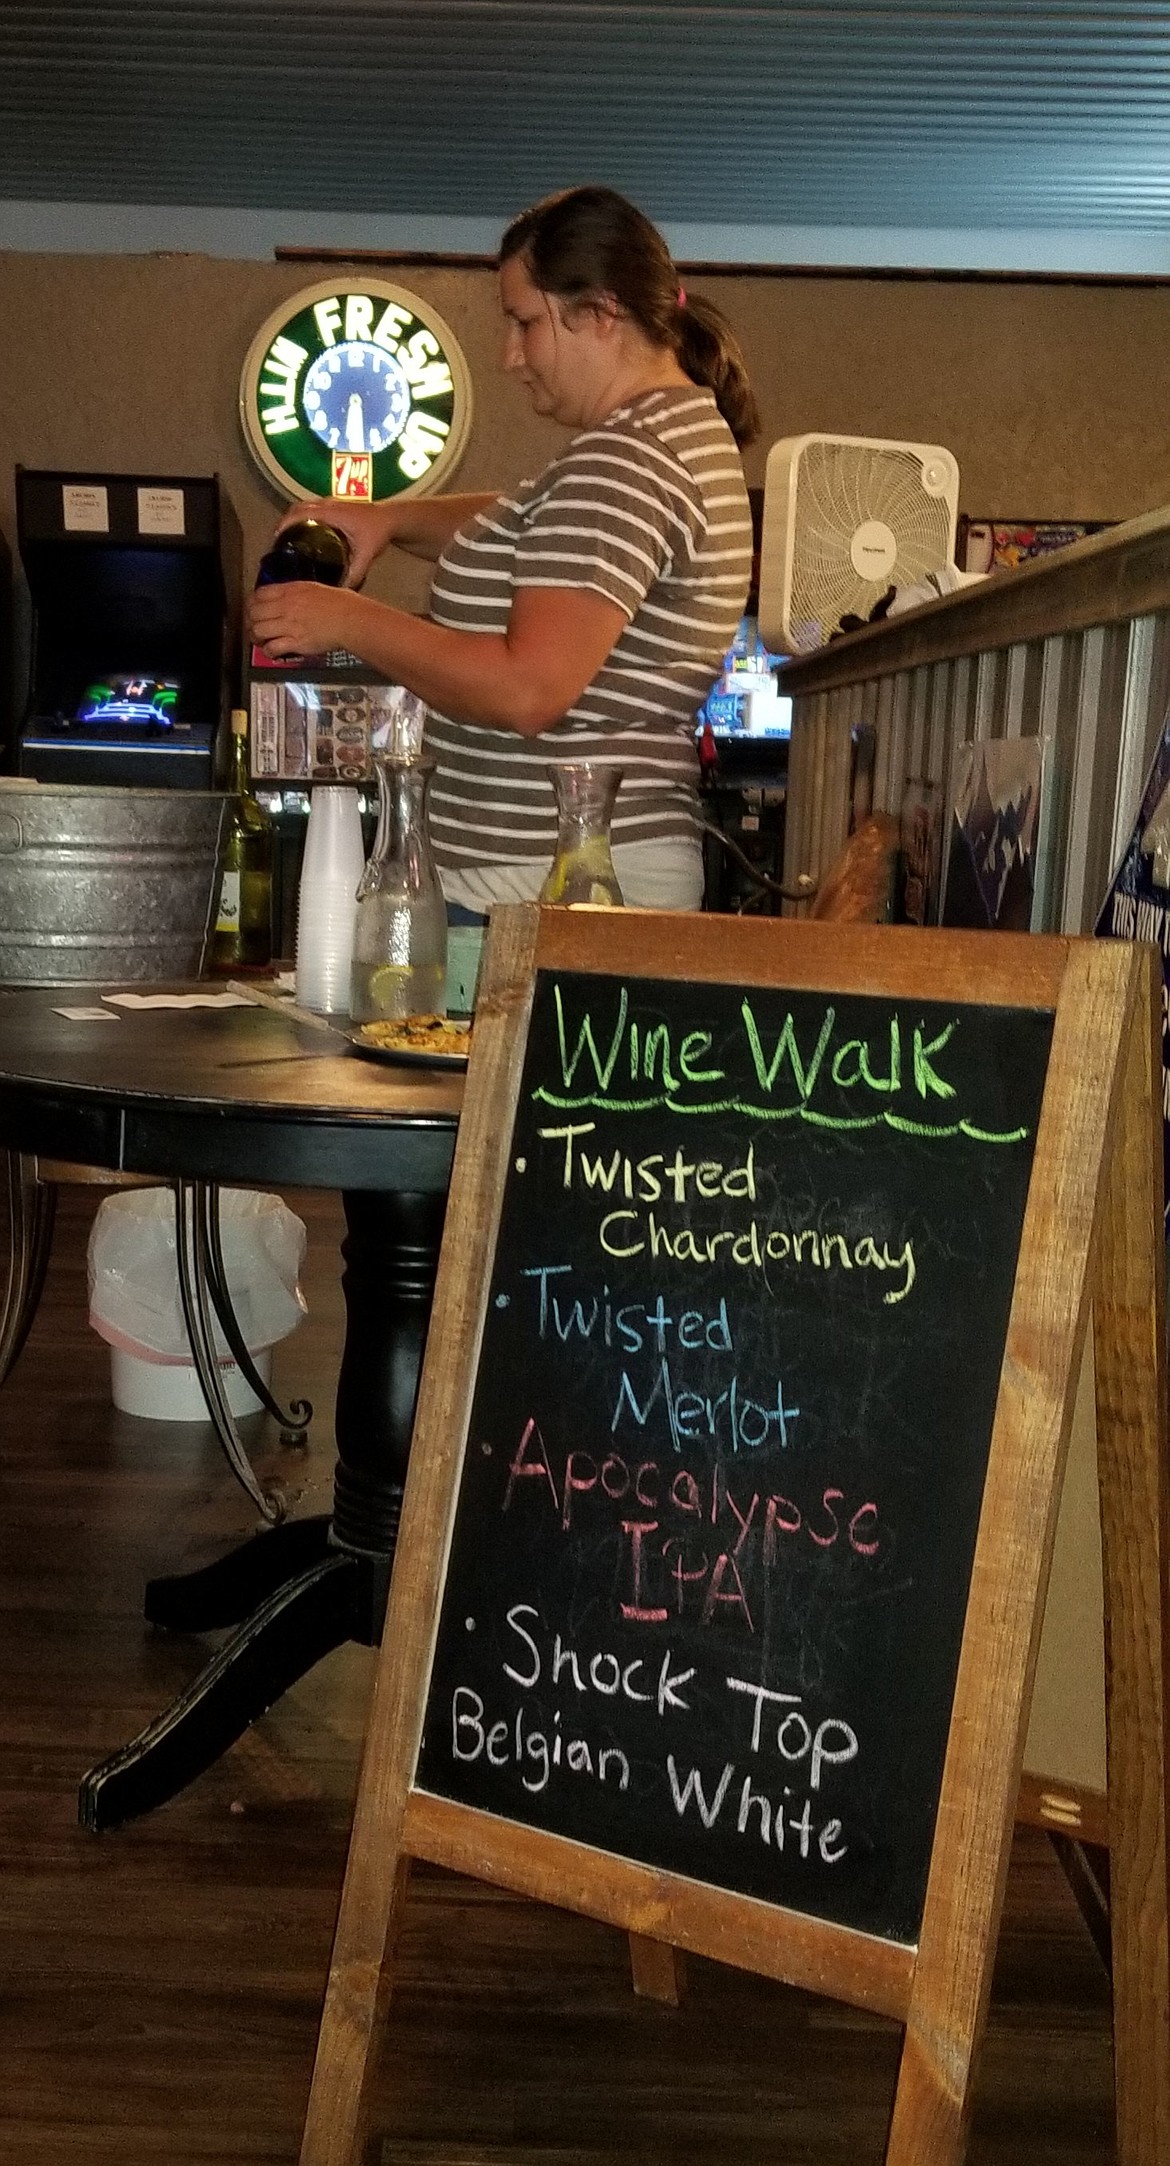 FRESH UP
WITH
7UP
Wine Walk
· Twisted
Chardonnay
· Twisted
Merlot
· Apocalypse
IPA
· Shock Top
Belgian White
THIS WAY